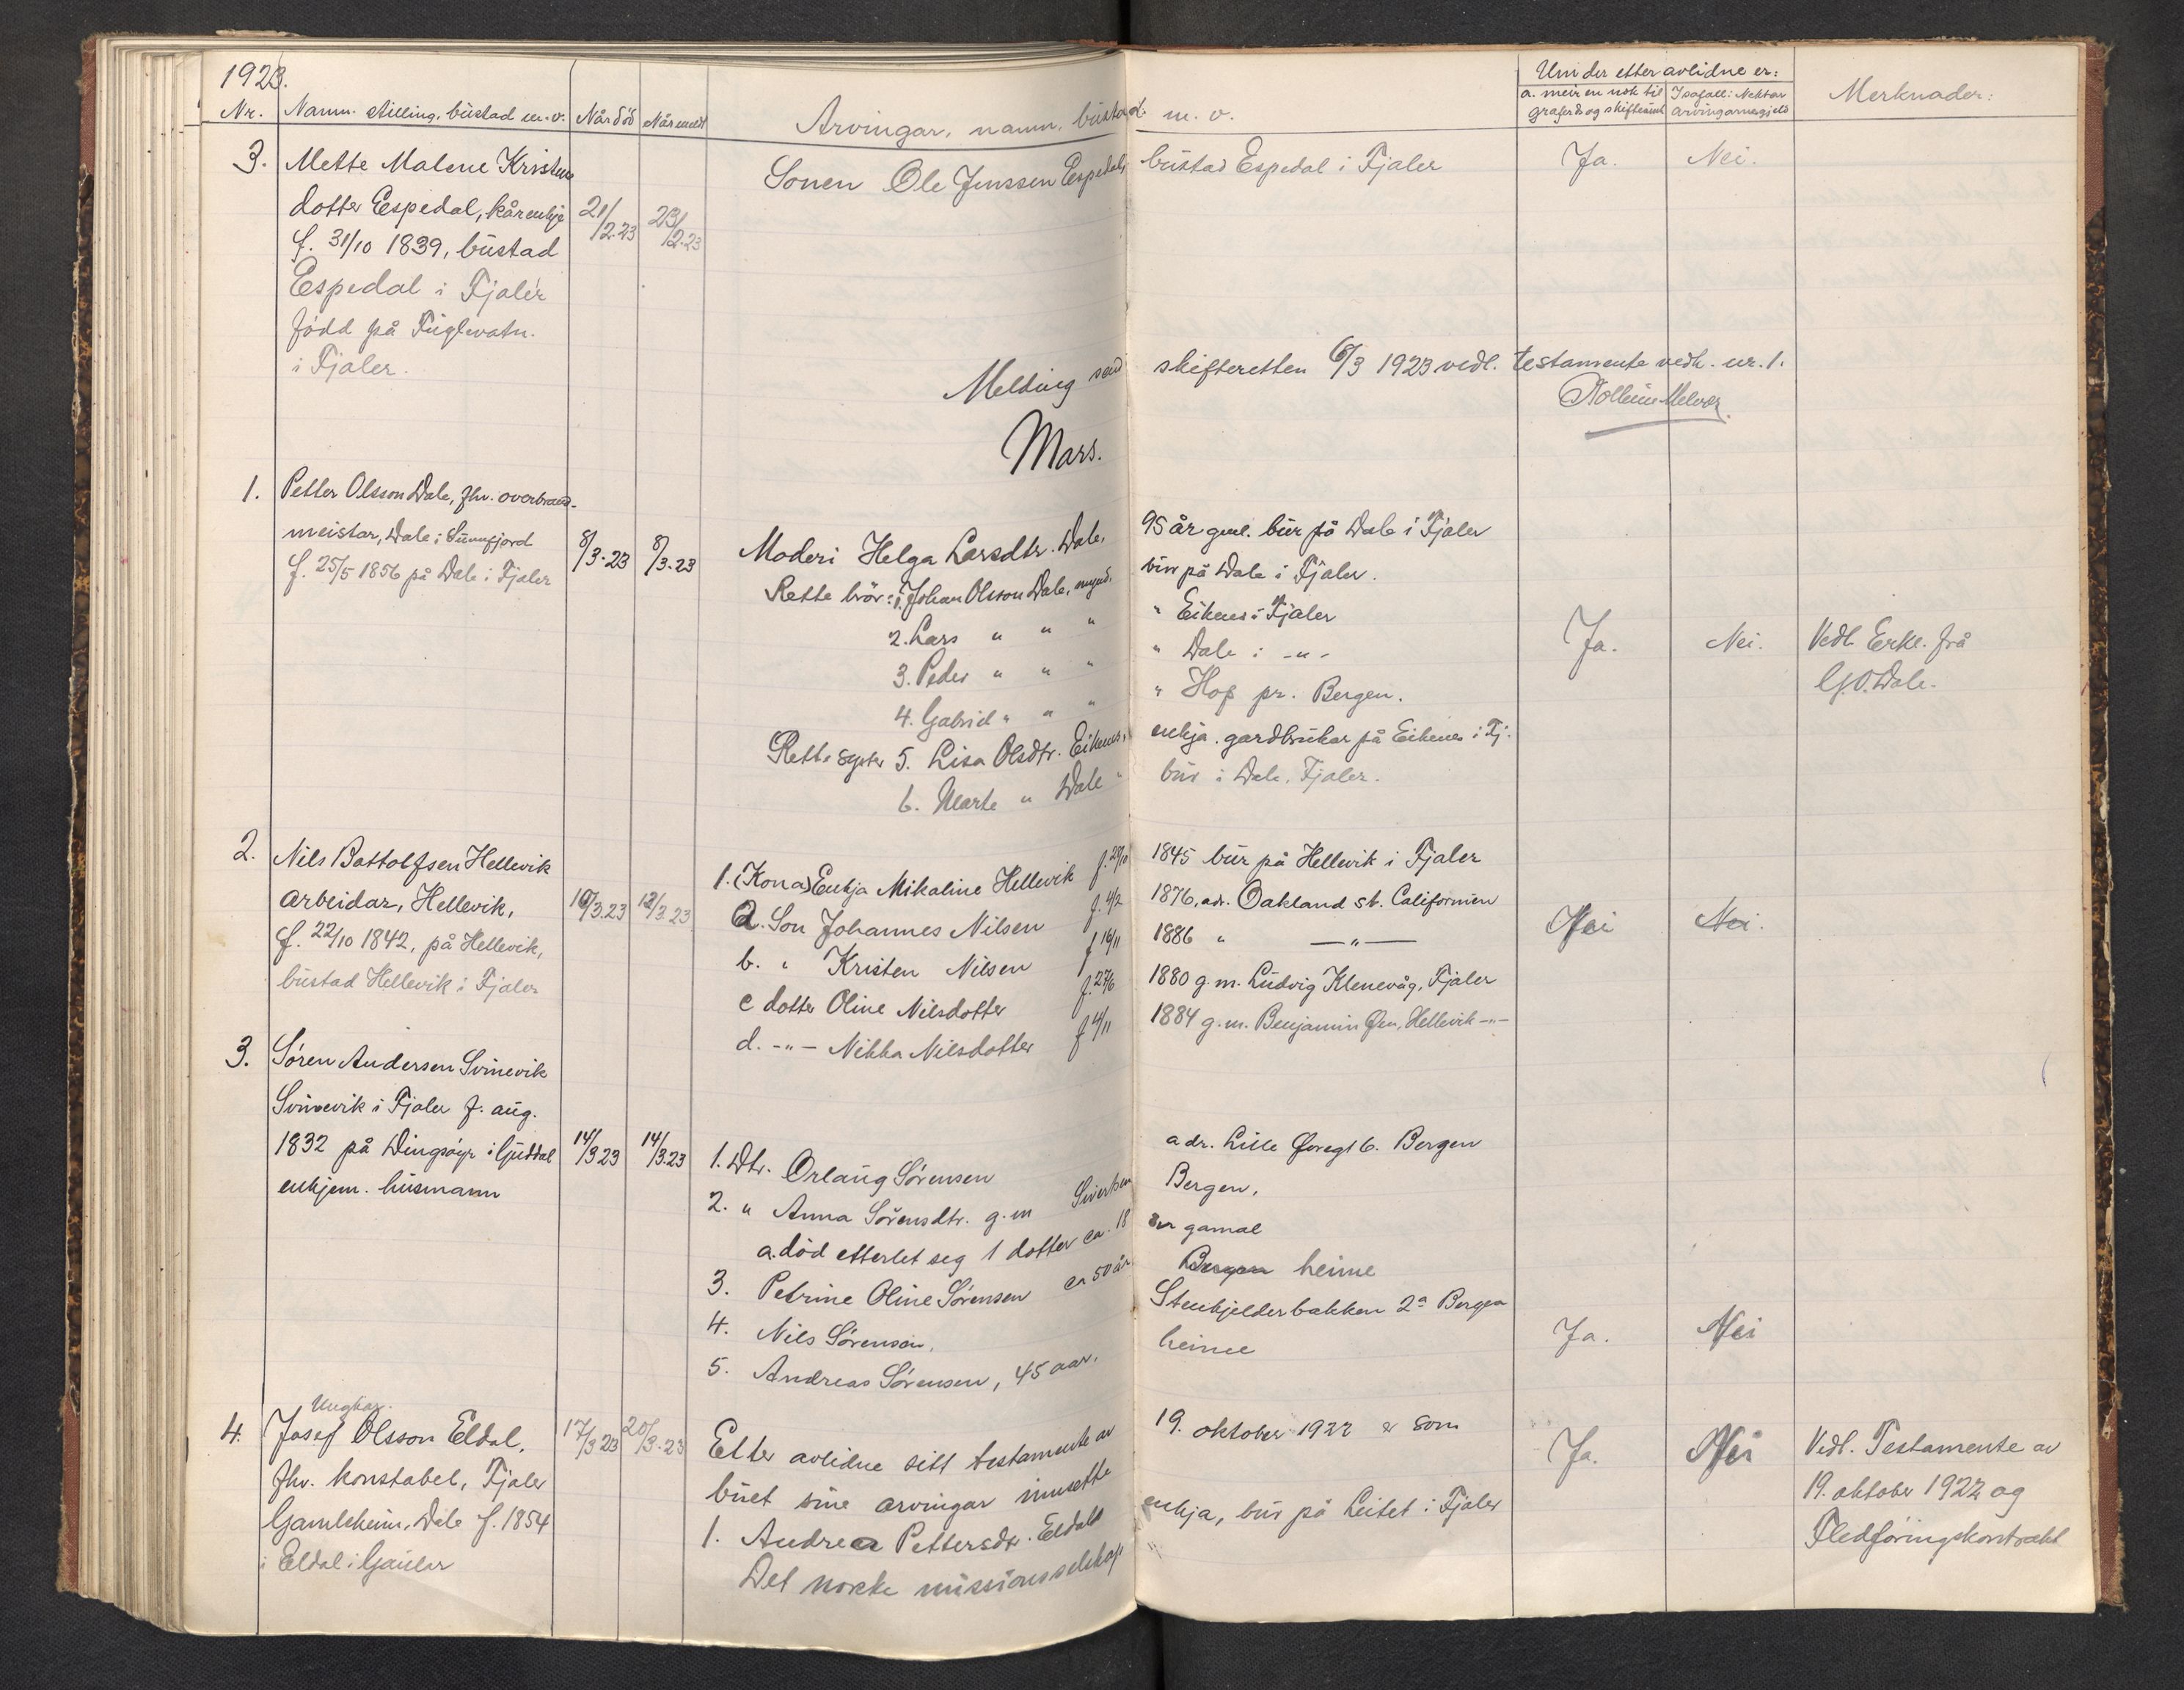 1923.
Nr. Namn. stilling, bustad m. v. Når död Når meldt Arvingar, namn, bustad m. v. Um der etter avlidne er: Merknader:
a. meir en nok til graferd og skifteinnt.
I sofall: Nektar arvingarne gjeld
3. Mette Malene Kristen
dotter Espedal, kårenkje 21/2.23 23/2.23
f. 31/10 1839, bustad
Espedal i Fjaler
född på Fuglevatn.
i Fjaler.
Sonen Ole Jenssen Espedal, bustad Espedal i Fjaler Ja. Nei.
Melding send skifteretten 6/3 1923 vedl. testamente vedk. nr. 1.
Mars.
1. Petter Olsson Dale, fhv. overbrand-
meistar, Dale i Sunnfjord 8/3.23 8/3.23
f. 25/5 1856 på Dale i Fjaler
Moderi Helga Larsdtr. Dale, 95 år gml. bur på Dale i Fjaler
Rette brör: 1. Johan Olsson Dale, mynd. bur på Dale i Fjaler.
2. Lars " " " " Eikenes i Fjaler
3. Peder " " " " Dale i -"-
4. Gabriel " " " " Hop pr. Bergen.
Rette syster 5. Lisa Olsdtr. Eikenes, enkja. gardbrukar på Eikenes i Fj.
6. Marte " Dale " bur i Dale, Fjaler.
Ja. Nei. Vedl. Erkl. frå
G. O. Dale.
2. Nils Bottolfsen Hellevik
arbeidar, Hellevik, 10/3.23 12/3.23
f. 22/10 1842, på Hellevik,
bustad Hellevik i Fjaler
1. (Kona) Enkja Mikaline Hellevik f. 29/10 1845 bur på Hellevik i Fjaler
a. Son Johannes Nilsen f. 4/2 1876, adr. Oakland st. Californien
b. " Kristen Nilsen f 16/11 1886 " —"—
c dotter Oline Nilsdotter f. 27/6 1880 g. m. Ludvig Klenevåg, Fjaler
d. -"- Nikka Nilsdotter f 4/11 1884 g. m. Benjamin Øen, Hellevik -"-
Nei Nei.
3. Søren Andersen Svinevik
Svinevik i Fjaler f. aug.
1832 på Dingsøyr i Guddal 14/3 23 14/3.23
enkjem. husmann
1. Dtr. Orlaug Sørensen adr. Lille Øvregt 6. Bergen
2. " Anna Sørensdtr. g. m Sivertsen Bergen,
a. död etterlet seg 1 dotter ca. 18 år gamal
3. Petrine Oline Sørensen ca 50 år Bergen heime
4. Nils Sørensen, Stenkjelderbakken 2a Bergen
5. Andreas Sørensen, 45 aar. heime
Ja. Nei
Ungkar.
4. Josef Olsson Eldal, 17/3 23 20/3.23
fhv. konstabel, Fjaler
Gamleheim, Dale f. 1854
i Eldal i Gaular
Etter avlidne sitt testamente av 19. oktober 1922 er som
buet sine arvingar innsette
1. Andrea Pettersdtr. Eldal enkja, bur på Leitet i Fjaler
Det norske missionsselskap
Ja. Nei Vedl. Testamente av
19. oktober 1922 og
Fledföringskontrakt